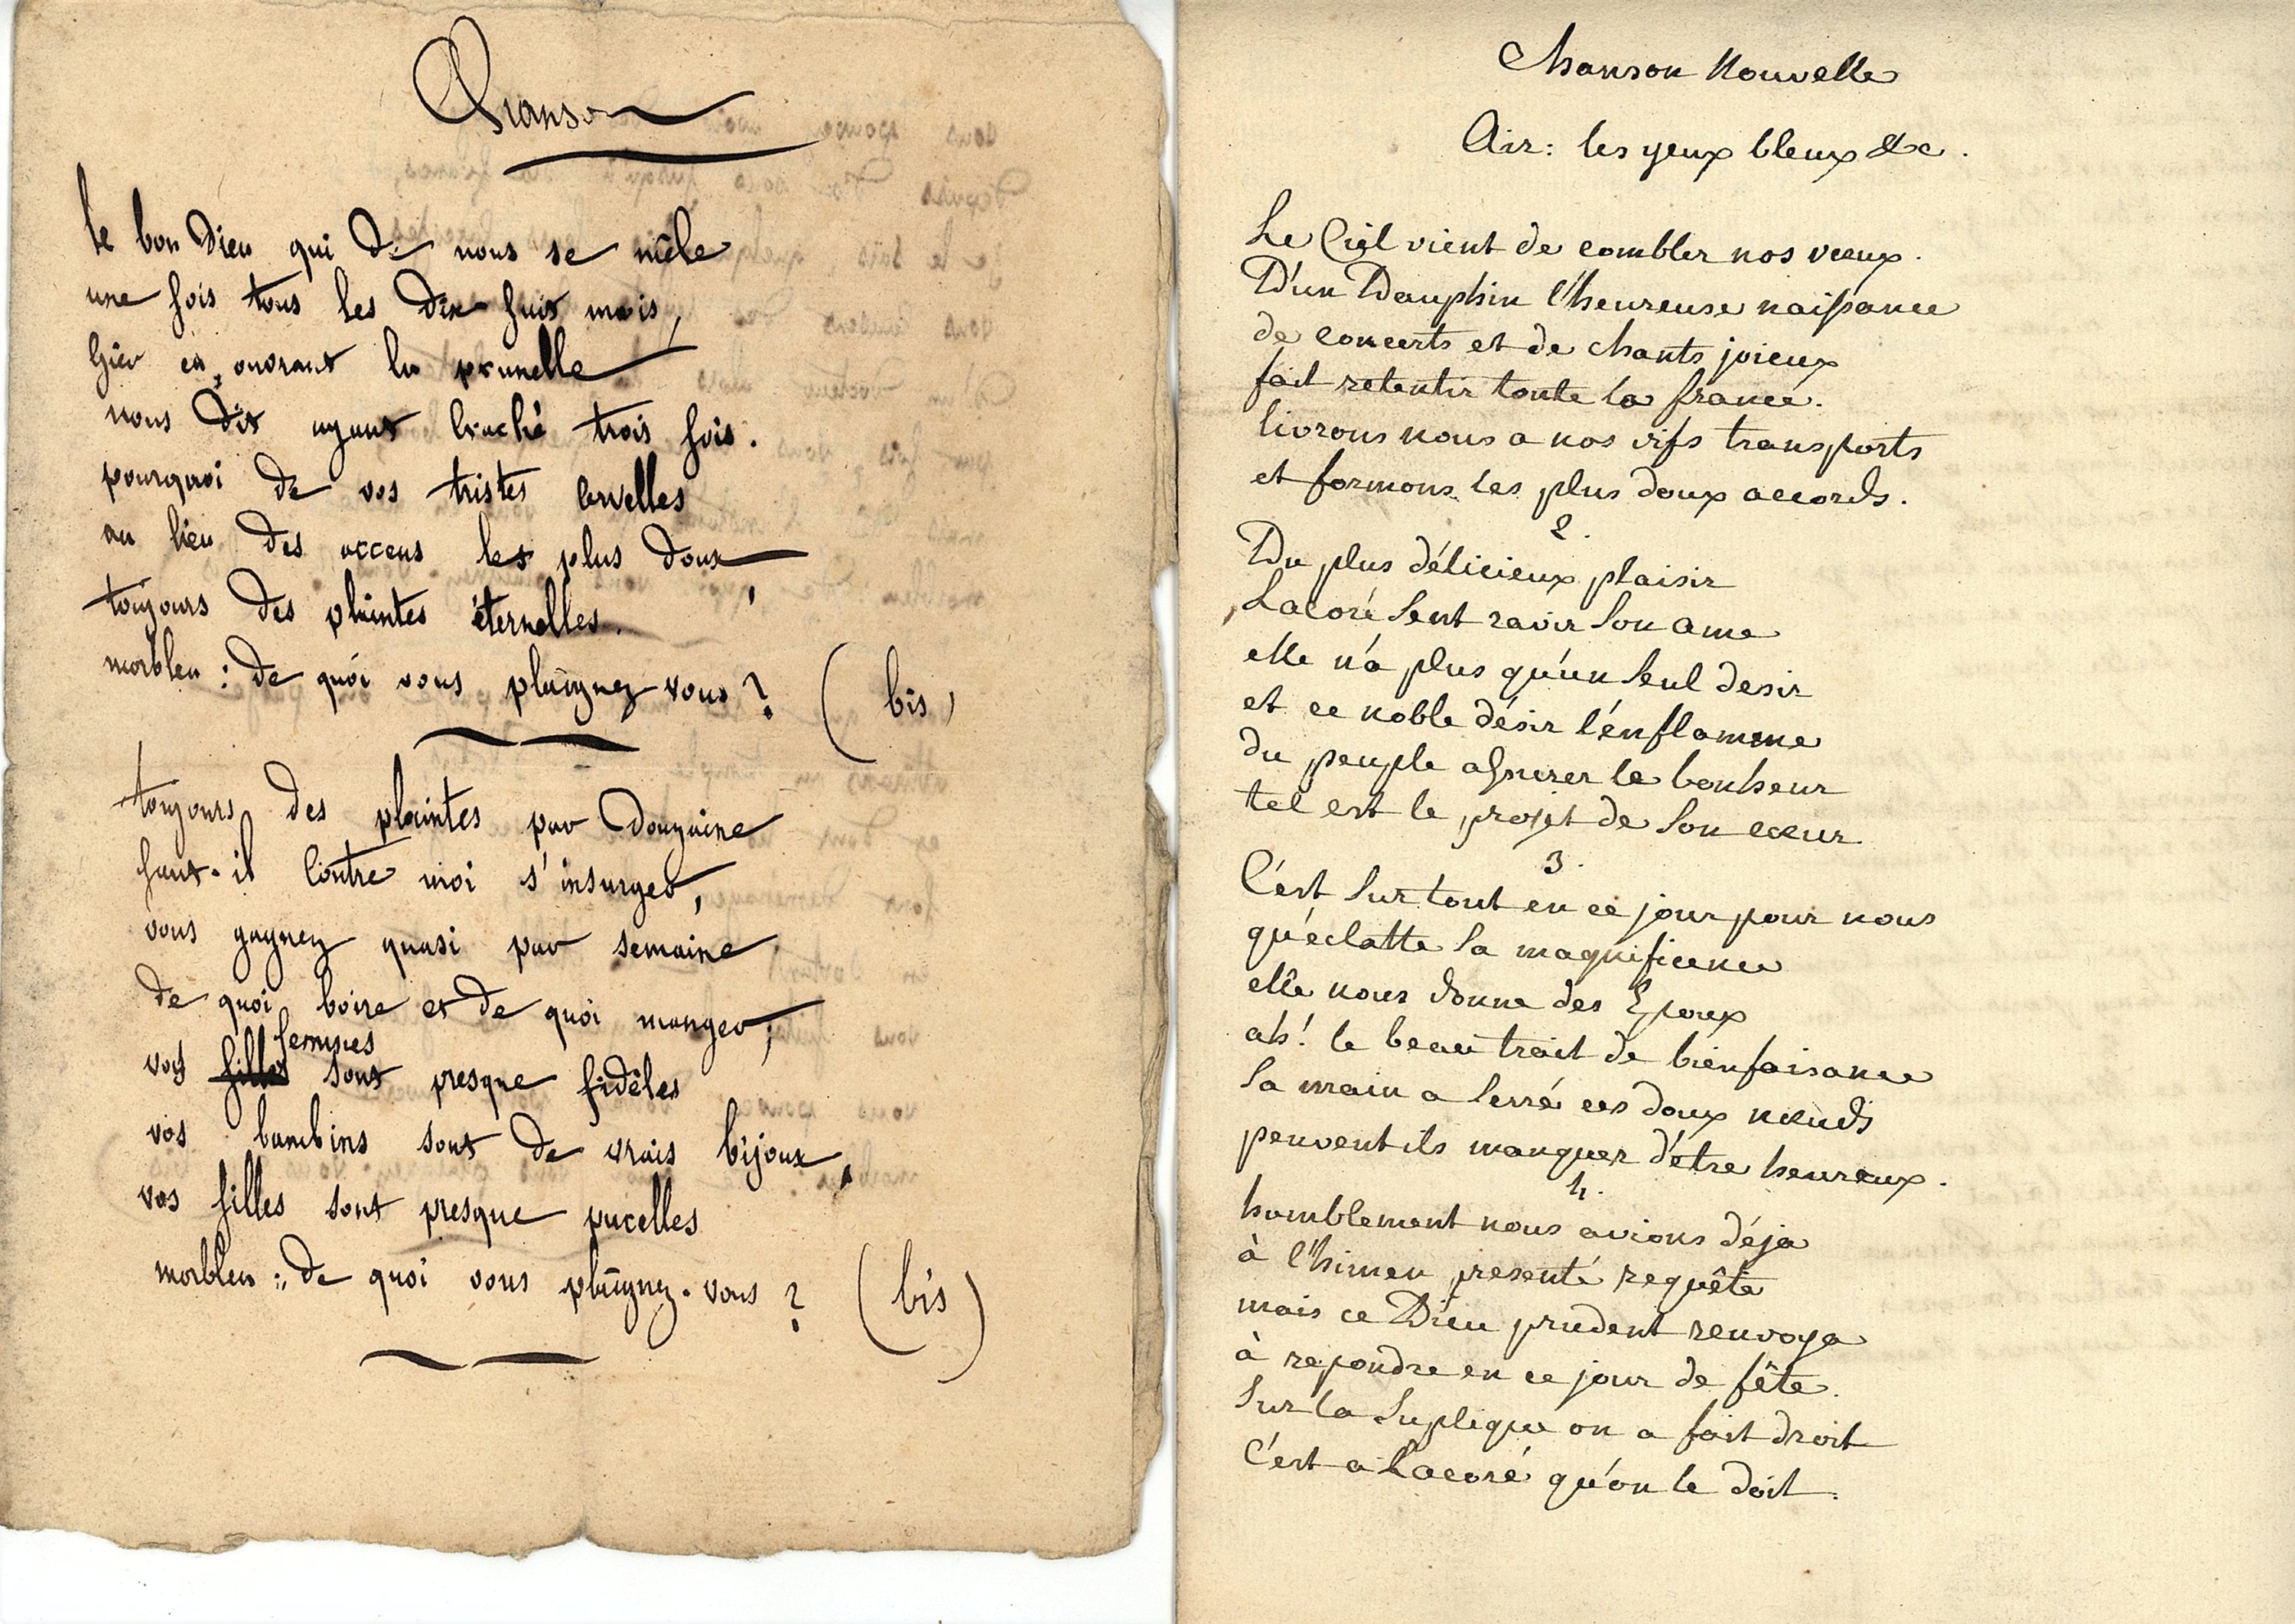 Chanson
le bon Dieu qui de nous se mêle
une fois tous les dix huit mois,
hier en ouvrant la prunelle
nous dit ayant craché trois fois.
pourquoi de vos tristes cervelles
au lieu des accens les plus doux,
toujours des plaintes éternelles.
morbleu : de quoi vous plaignez vous ? (bis)
toujours des plaintes par douzaine
faut-il contre moi s'insurger,
vous gagnez quasi par semaine
de quoi boire et de quoi manger;
femmes
vos filles sont presque fidèles
vos bambins sont de vrais bijoux,
vos filles sont presque pucelles
morbleu : de quoi vous plaignez-vous ? (bis)
Chanson Nouvelle
Air: les yeux bleux &c.
Le Ciel vient de combler nos vœux.
D'un Dauphin l'heureuse naissance
de concerts et de chants joieux
fait retentir toute la france.
livrons nous a nos vifs transports
et formons les plus doux accords.
2.
Du plus délicieux plaisir
Lacoré sent ravir son ame
elle n'a plus qu'un seul desir
et ce noble désir l'énflamme
du peuple assurer le bonheur
tel est le projet de son cœur
3.
C'est sur tout en ce jour pour nous
qu'éclatte sa magnificence
elle nous donne des Epoux
ah! le beau trait de bienfaisance
sa main a serré ces doux nœuds
peuvent ils manquer d'être heureux.
4.
humblement nous avions déja
à l'himen presenté requête
mais ce Dieu prudent renvoya
à repondre en ce jour de fête.
sur la suplique on a fait droit
C'est a Lacoré qu'on le doit.